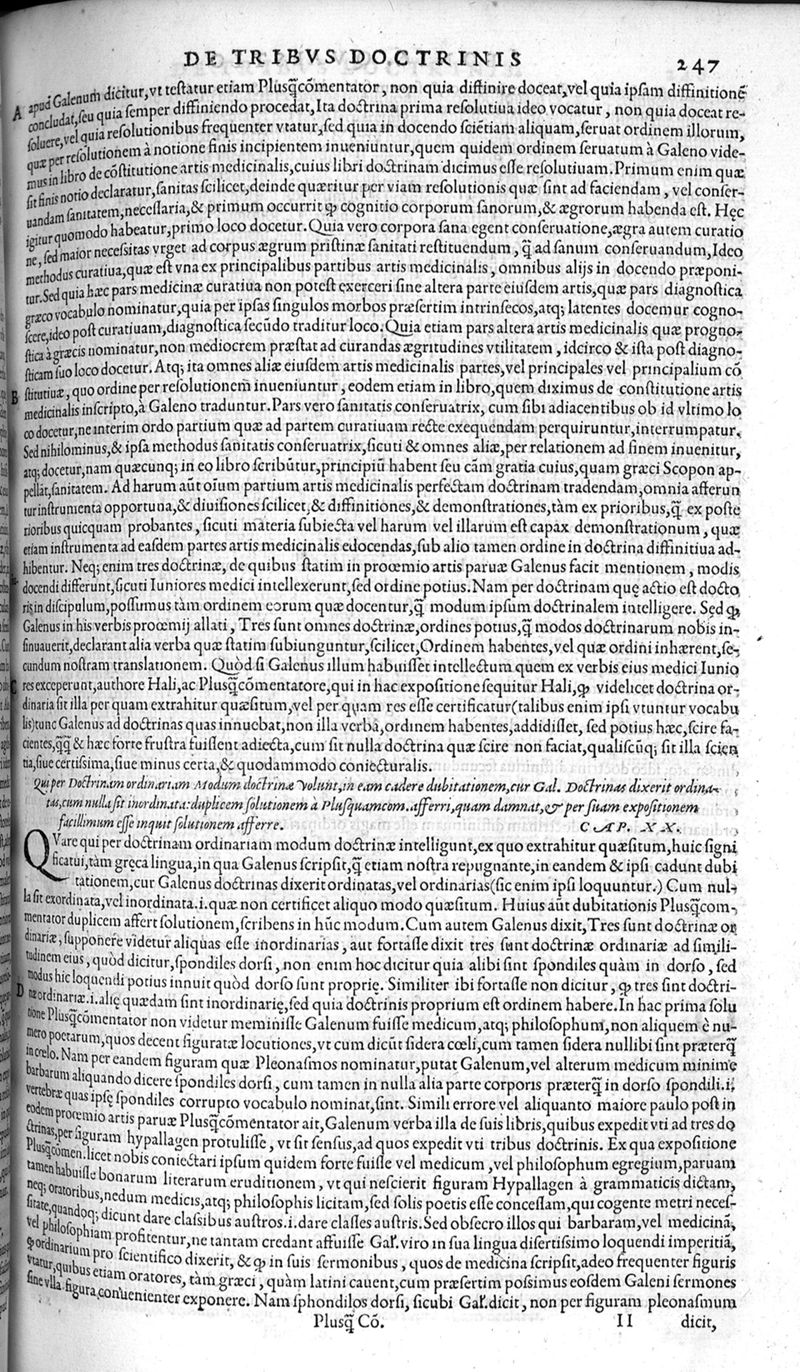 DE TRIBVS DOCTRINIS 247
A apud Galenum dicitur, vt testatur etiam Plusq̃cõmentator, non quia diffinire doceat, vel quia ipsam diffinitionẽ
concludat, seu quia semper diffiniendo procedat, Ita doctrina prima resolutiua ideo vocatur, non quia doceat re-
soluere, vel quia resolutionibus frequenter vtatur, sed quia in docendo sciẽtiam aliquam, seruat ordinem illorum,
quæ per resolutionem à notione finis incipientem inueniuntur, quem quidem ordinem seruatum à Galeno vide-
mus in libro de cõstitutione artis medicinalis, cuius libri doctrinam dicimus esse resolutiuam. Primum enim quæ
sit finis notio declaratur, sanitas scilicet, deinde quæritur per viam resolutionis quæ sint ad faciendam, vel conser-
uandam sanitatem, necessaria, & primum occurrit ꝙ cognitio corporum sanorum, & ægrorum habenda est. Hęc
igitur quomodo habeatur, primo loco docetur. Quia vero corpora sana egent conseruatione, ægra autem curatio
ne, sed maior necessitas vrget ad corpus ægrum pristinæ sanitati restituendum, q̃ ad sanum conseruandum, Ideo
methodus curatiua, quæ est vna ex principalibus partibus artis medicinalis, omnibus alijs in docendo præponi-
tur. Sed quia hæc pars medicinæ curatiua non potest exerceri sine altera parte eiusdem artis, quæ pars diagnostica
græco vocabulo nominatur, quia per ipsas singulos morbos præsertim intrinsecos, atq; latentes docemur cogno-
scere, ideo post curatiuam, diagnostica secũdo traditur loco. Quia etiam pars altera artis medicinalis quæ progno-
stica à græcis nominatur, non mediocrem præstat ad curandas ægritudines vtilitatem, idcirco & ista post diagno-
sticam suo loco docetur. Atq; ita omnes aliæ eiusdem artis medicinalis partes, vel principales vel principalium cõ
B stitutiuæ, quo ordine per resolutionem inueniuntur, eodem etiam in libro, quem diximus de constitutione artis
medicinalis inscripto, à Galeno traduntur. Pars vero sanitatis conseruatrix, cum sibi adiacentibus ob id vltimo lo
co docetur, ne interim ordo partium quæ ad partem curatiuam recte exequendam perquiruntur, interrumpatur.
Sed nihilominus, & ipsa methodus sanitatis conseruatrix, sicuti & omnes aliæ, per relationem ad finem inuenitur,
atq; docetur, nam quæcunq; in eo libro scribũtur, principiũ habent seu cãm gratia cuius, quam græci Scopon ap-
pellãt, sanitatem. Ad harum aũt oĩum partium artis medicinalis perfectam doctrinam tradendam, omnia afferun
tur instrumenta opportuna, & diuisiones scilicet, & diffinitiones, & demonstrationes, tàm ex prioribus, q̃ ex poste
rioribus quicquam probantes, sicuti materia subiecta vel harum vel illarum est capax demonstrationum, quæ
etiam instrumenta ad easdem partes artis medicinalis edocendas, sub alio tamen ordine in doctrina diffinitiua ad-
hibentur. Neq; enim tres doctrinæ, de quibus statim in prooemio artis paruæ Galenus facit mentionem, modis
docendi differunt, sicuti Iuniores medici intellexerunt, sed ordine potius. Nam per doctrinam quę actio est docto
ris in discipulum, possumus tàm ordinem eorum quæ docentur, q̃ modum ipsum doctrinalem intelligere. Sed ꝙ
Galenus in his verbis prooemij allati, Tres sunt omnes doctrinæ, ordines potius, q̃ modos doctrinarum nobis in-
sinuauerit, declarant alia verba quæ statim subiunguntur, scilicet, Ordinem habentes, vel quæ ordini inhærent, se-
cundum nostram translationem. Quòd si Galenus illum habuisset intellectum quem ex verbis eius medici Iunio
C res exceperunt, authore Hali, ac Plusq̃cõmentatore, qui in hac expositione sequitur Hali, ꝙ videlicet doctrina or-
dinaria sit illa per quam extrahitur quæsitum, vel per quam res esse certificatur (talibus enim ipsi vtuntur vocabu
lis) tunc Galenus ad doctrinas quas innuebat, non illa verba, ordinem habentes, addidisset, sed potius hæc, scire fa-
cientes, q̃q̃ & hæc forte frustra fuissent adiecta, cum sit nulla doctrina quæ scire non faciat, qualiscũq; sit illa scien
tia, siue certissima, siue minus certa, & quodammodo coniecturalis.
Qui per Doctrinam ordinariam Modum doctrinæ Volunt, in eam cadere dubitationem, cur Gal. Doctrinas dixerit ordina-
tas, cum nulla sit inordinata: duplicem solutionem a Plusquamcom. afferri, quam damnat, & per suam expositionem
facillimum esse inquit solutionem afferre. CAP. XX.
QVare qui per doctrinam ordinariam modum doctrinæ intelligunt, ex quo extrahitur quæsitum, huic signi
ficatui, tàm gręca lingua, in qua Galenus scripsit, q̃ etiam nostra repugnante, in eandem & ipsi cadunt dubi
tationem, cur Galenus doctrinas dixerit ordinatas, vel ordinarias (sic enim ipsi loquuntur.) Cum nul-
la sit exordinata, vel inordinata .i. quæ non certificet aliquo modo quæsitum. Huius aũt dubitationis Plusq̃com-
mentator duplicem affert solutionem, scribens in hũc modum. Cum autem Galenus dixit, Tres sunt doctrinæ or
dinariæ, supponere videtur aliquas esse inordinarias, aut fortasse dixit tres sunt doctrinæ ordinariæ ad simili-
tudinem eius, quòd dicitur, spondiles dorsi, non enim hoc dicitur quia alibi sint spondiles quàm in dorso, sed
modus hic loquendi potius innuit quòd dorso sunt proprię. Similiter ibi fortasse non dicitur, ꝙ tres sint doctri-
D næ ordinariæ .i. alię quædam sint inordinarię, sed quia doctrinis proprium est ordinem habere. In hac prima solu
tione Plusq̃cõmentator non videtur meminisse Galenum fuisse medicum, atq; philosophum, non aliquem è nu-
mero poetarum, quos decent figuratæ locutiones, vt cum dicũt sidera cœli, cum tamen sidera nullibi sint præterq̃
in cœlo. Nam per eandem figuram quæ Pleonasmos nominatur, putat Galenum, vel alterum medicum minime
barbarum aliquando dicere spondiles dorsi, cum tamen in nulla alia parte corporis præterq̃ in dorso spondili .i.
vertebræ quas ipse spondiles corrupto vocabulo nominat, sint. Simili errore vel aliquanto maiore paulo post in
eodem prooemio artis paruæ Plusq̃cõmentator ait, Galenum verba illa de suis libris, quibus expedit vti ad tres do
ctrinas, per figuram hypallagen protulisse, vt sit sensus, ad quos expedit vti tribus doctrinis. Ex qua expositione
Plusq̃cõmen. licet nobis coniectari ipsum quidem forte fuisse vel medicum, vel philosophum egregium, paruam
tamen habuisse bonarum literarum eruditionem, vt qui nescierit figuram Hypallagen à grammaticis dictam,
neq; oratoribus, nedum medicis, atq; philosophis licitam, sed solis poetis esse concessam, qui cogente metri neces-
sitate, quandoq; dicunt dare classibus austros .i. dare classes austris. Sed obsecro illos qui barbaram, vel medicinã,
vel philosophiam profitentur, ne tantam credant affuisse Gal. viro in sua lingua disertissimo loquendi imperitiã,
ꝙ ordinarium pro scientifico dixerit, & ꝙ in suis sermonibus, quos de medicina scripsit, adeo frequenter figuris
vtatur, quibus etiam oratores, tàm græci, quàm latini cauent, cum præsertim possimus eosdem Galeni sermones
sine vlla figura conuenienter exponere. Nam sphondilos dorsi, sicubi Gal. dicit, non per figuram pleonasmum
Plusq̃ Cõ. II dicit,